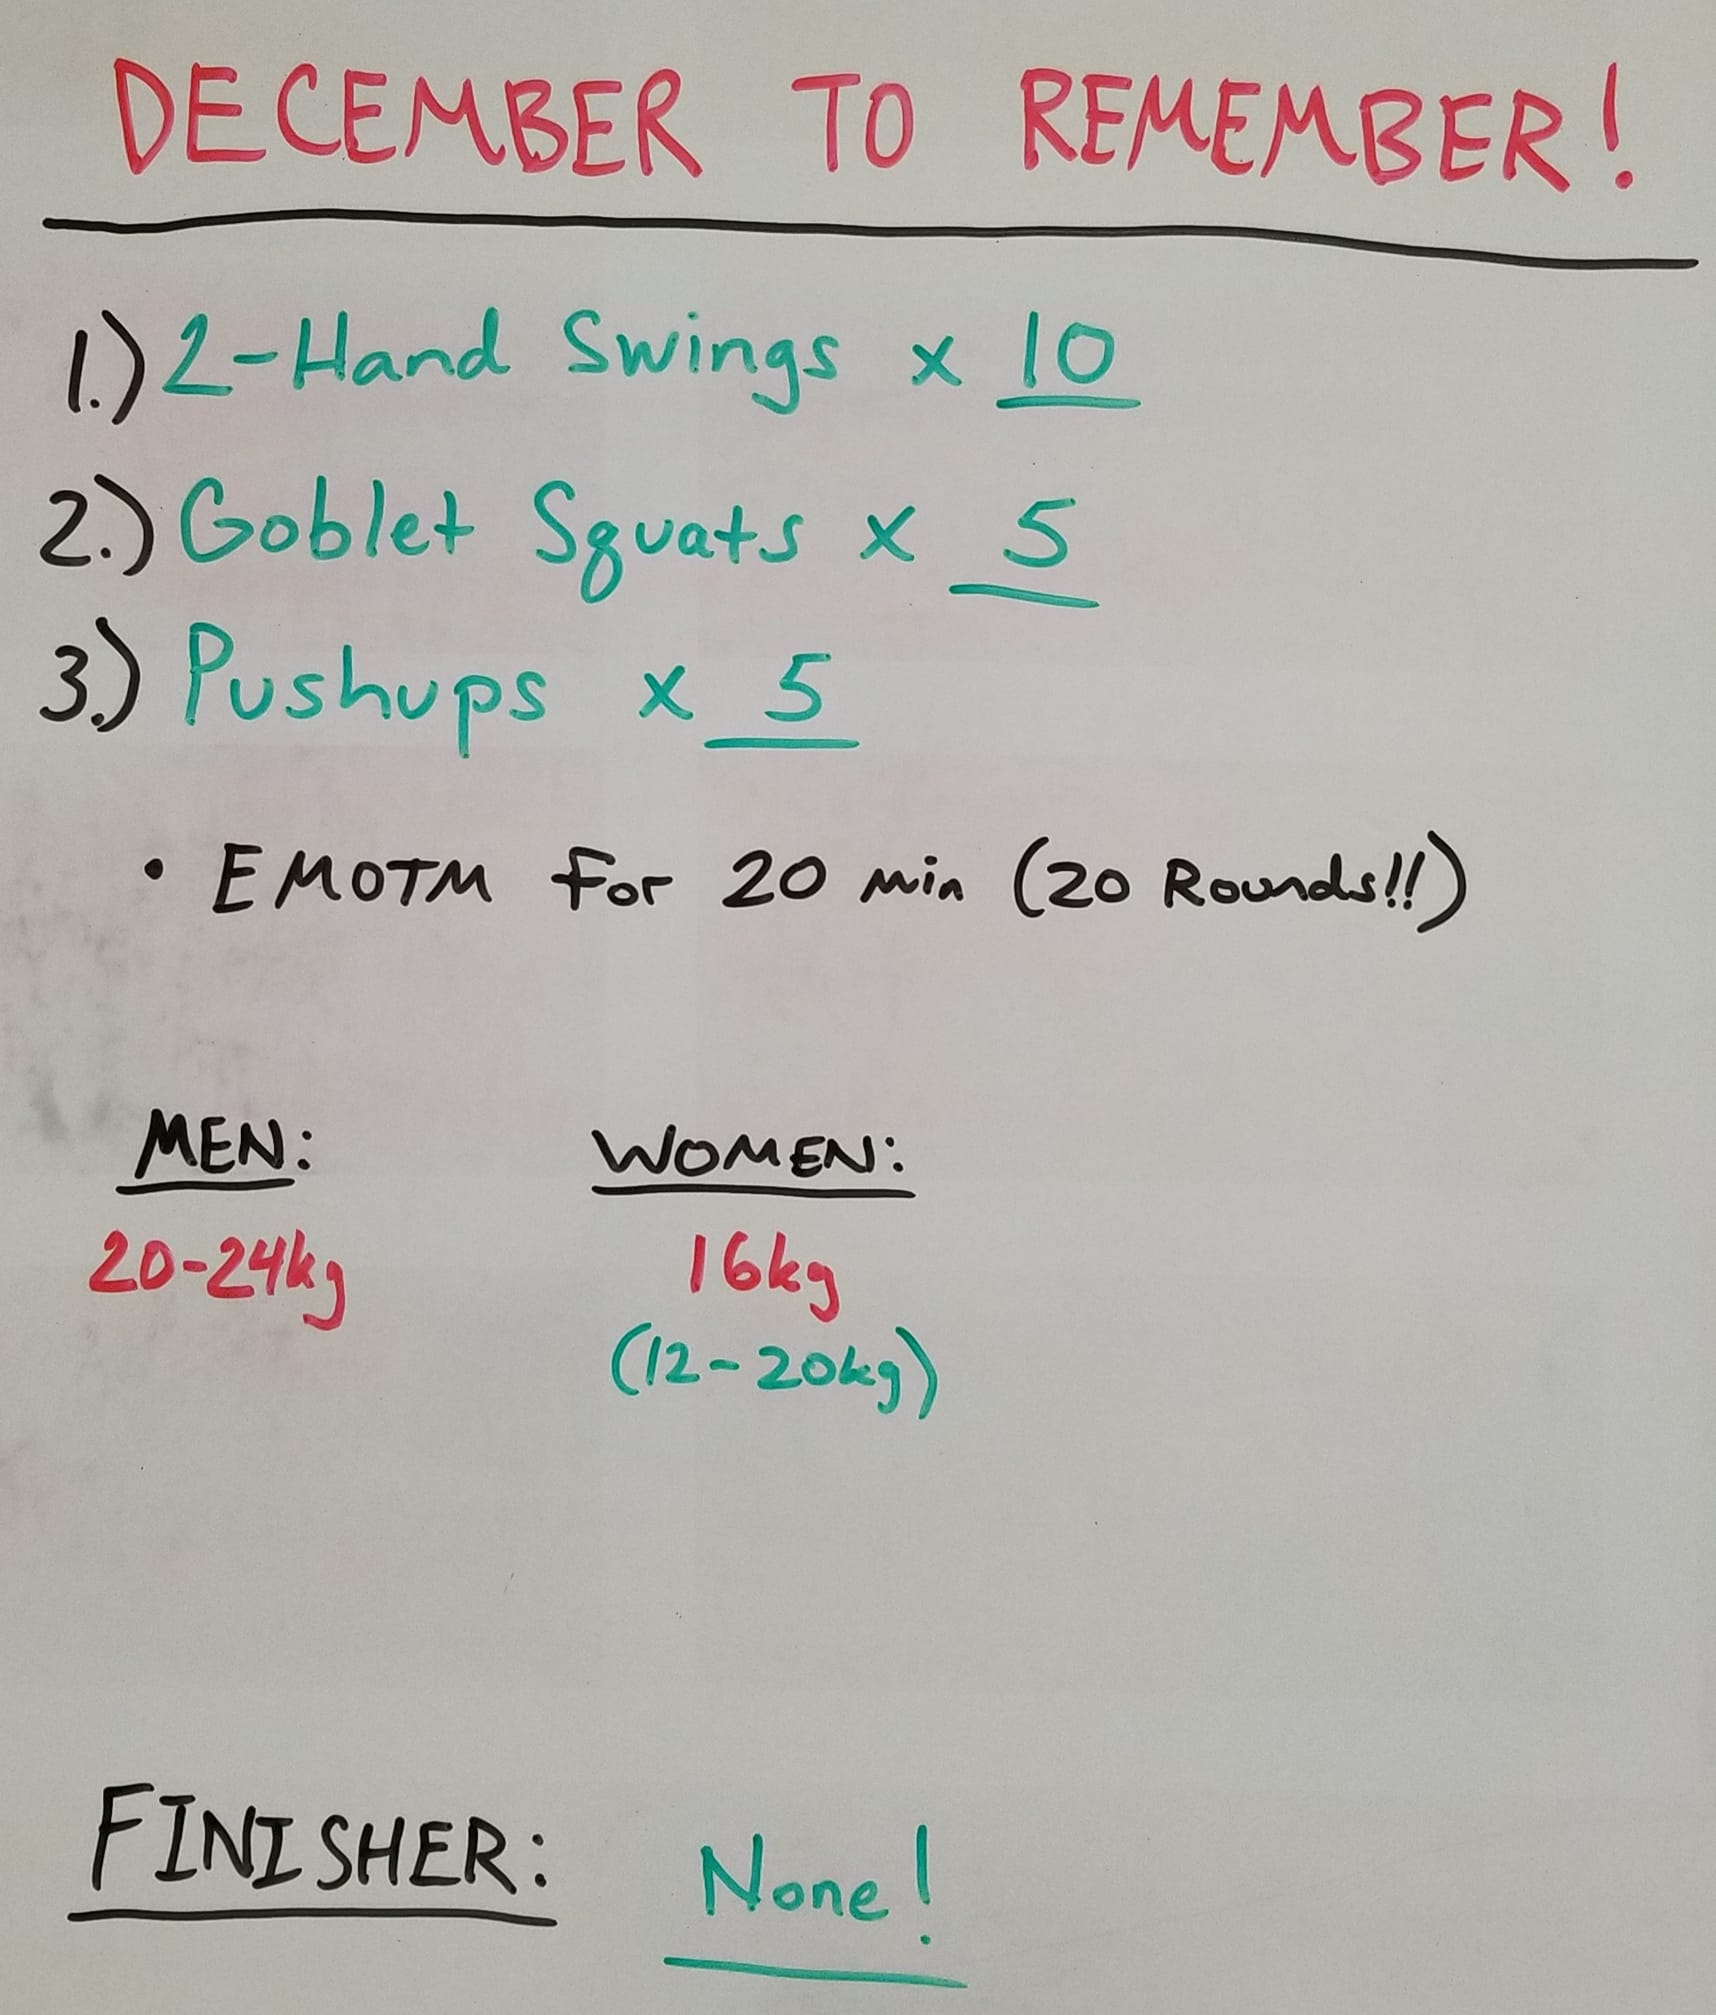 DECEMBER TO REMEMBER!
1.) 2-Hand Swings x 10
2.) Goblet Squats x 5
3.) Pushups x 5
• EMOTM For 20 min (20 Rounds!!)
MEN: WOMEN:
20-24kg 16kg
(12-20kg)
FINISHER: None!